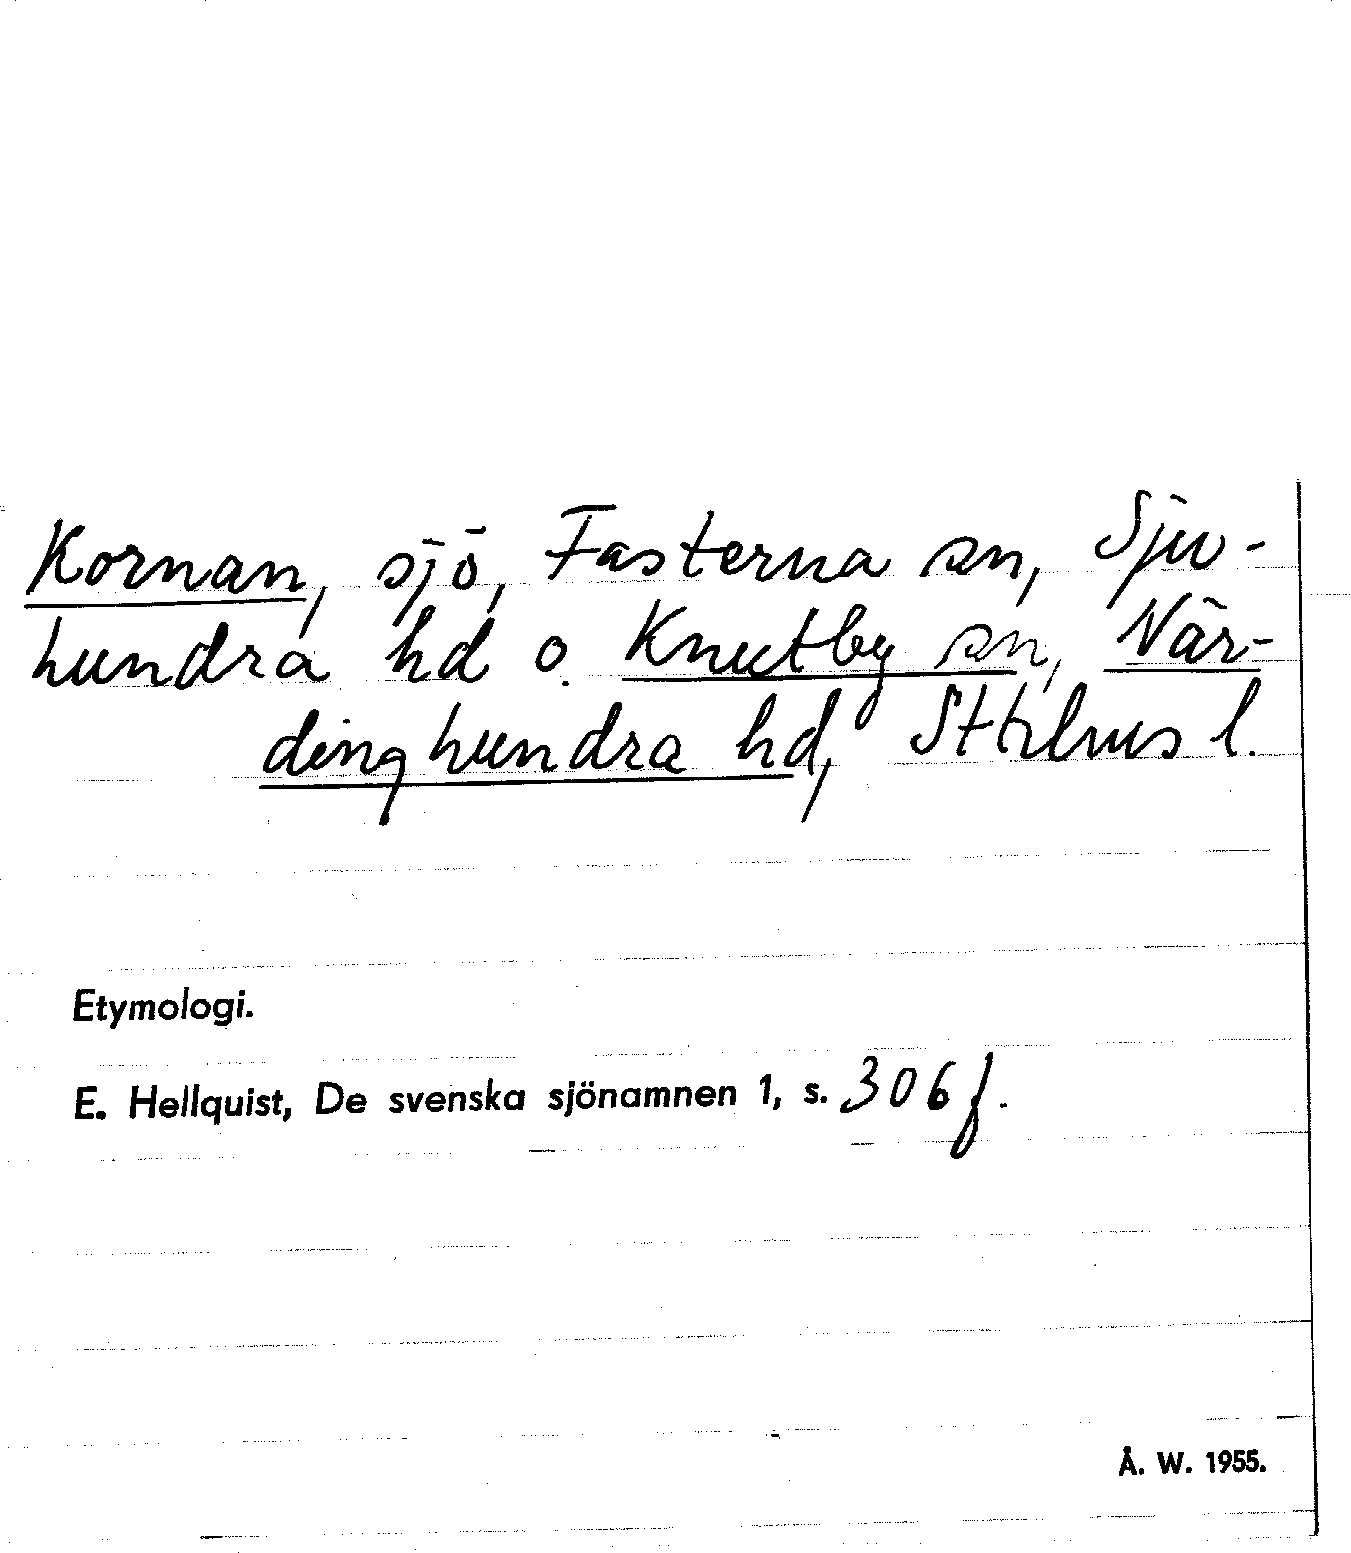 Kornan, sjö, Fasterna sn, Sju-
hundra hd o. Knutby sn, När-
dinghundra hd, Sthlms l.
Etymologi.
E. Hellquist, De svenska sjönamnen 1, s. 306 f.
Å. W. 1955.